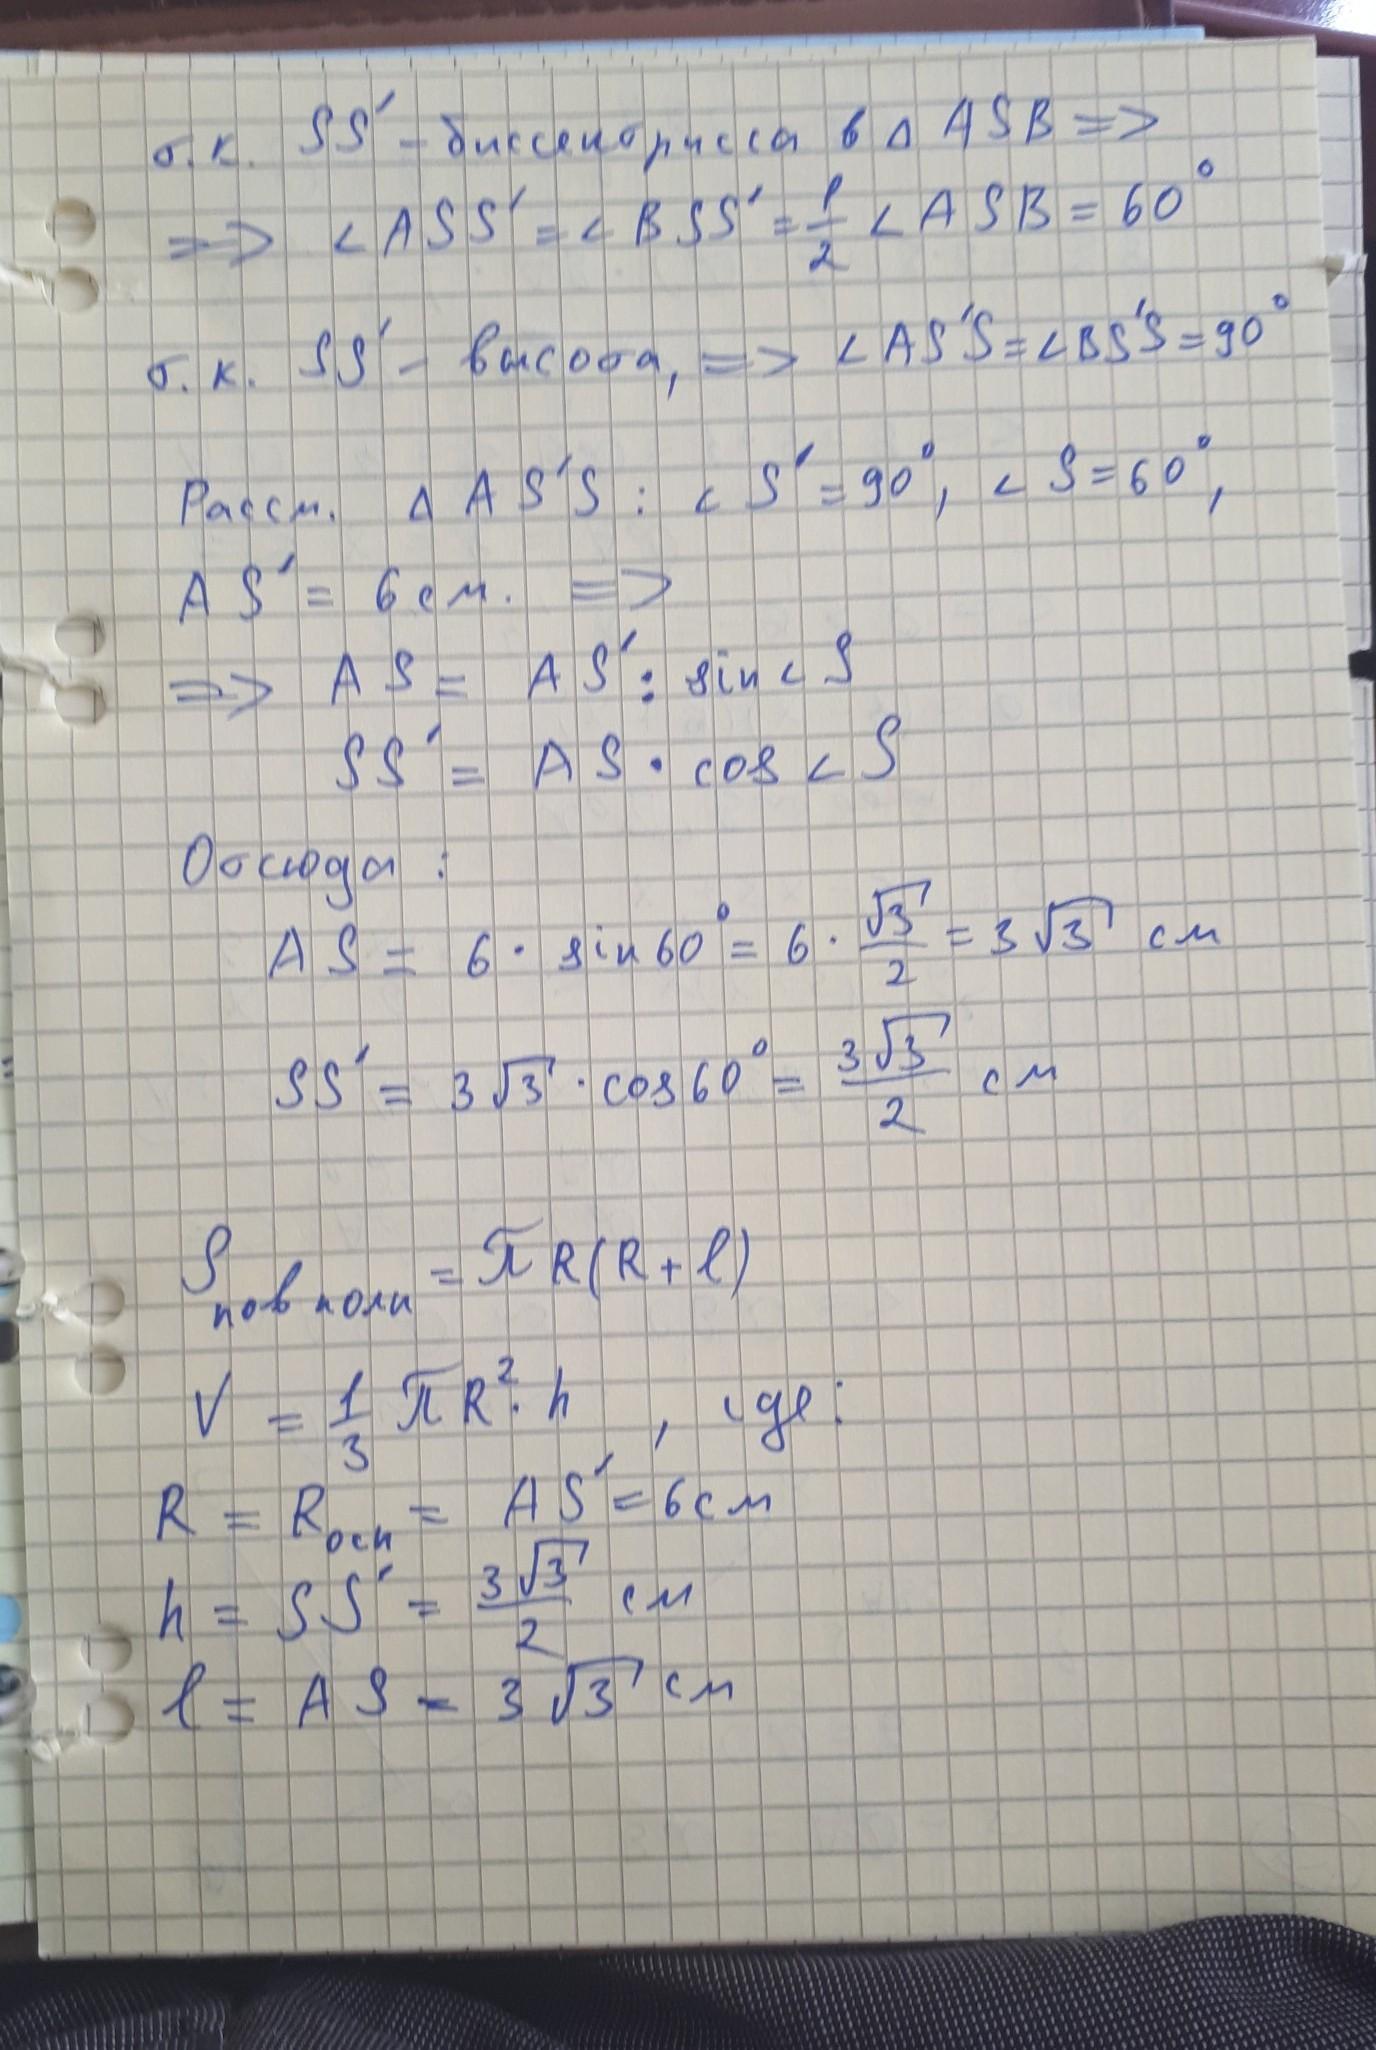 т.к. SS' - биссектрисса в Δ ASB =>
=> ∠ASS' = ∠BSS' = 1/2 ∠ASB = 60°
т.к. SS' - высота, => ∠AS'S = ∠BS'S = 90°
Рассм. Δ AS'S : ∠S' = 90°, ∠S = 60°,
AS' = 6 см. =>
=> AS = AS' : sin∠S
SS' = AS · cos∠S
Отсюда :
AS = 6 · sin60° = 6 · √3/2 = 3√3 см
SS' = 3√3 · cos60° = 3√3/2 см
S пов полн = πR(R + l)
V = 1/3 πR² · h , где :
R = Rосн = AS' = 6см
h = SS' = 3√3/2 см
l = AS = 3√3 см